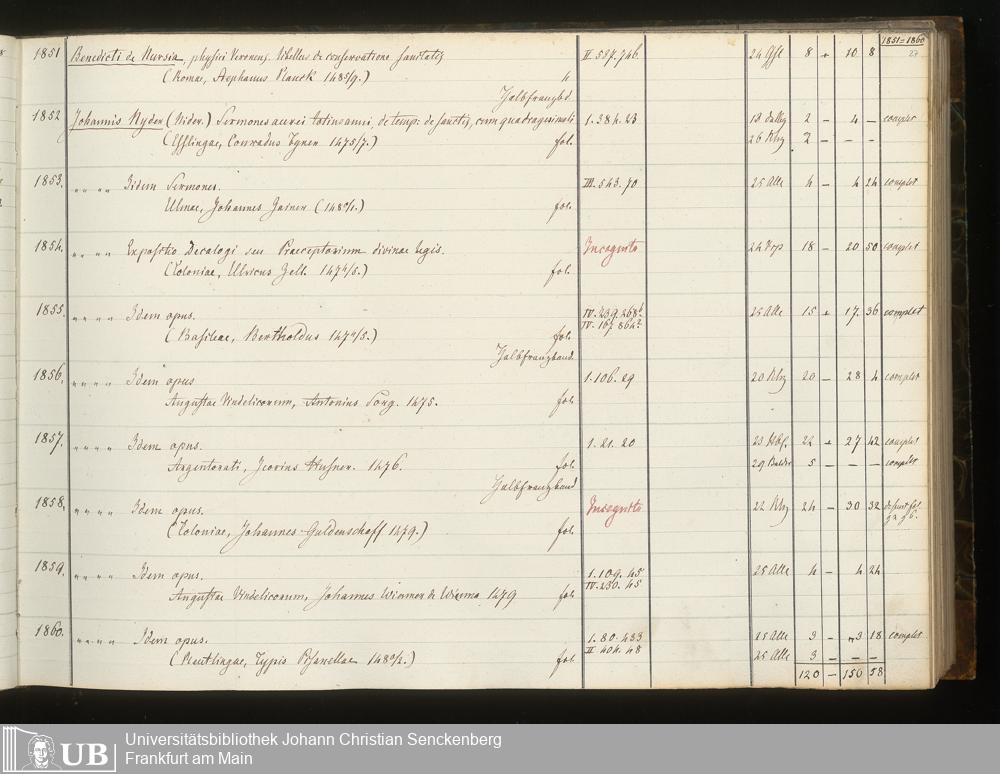 1851=1860
27
1851 Benedicti de Nursia, physici Veronens. libellus de conservatione sanitatis II. 537. 746. 24 8 + 10 8
(Romae, Stephanus Planck 1485/9.) "
Halbfranzbd.
1852 Johannis Nyder (Nider.) Sermones aurei totius anni, de temp: de sanctis, cum quadragesimali 1. 384. 23 2 – 4 – complet
(Esslingae, Conradus Fyner 1475/7.) fol. 26 2 – – –
1853. " " " " Eidem Sermones. III. 543. 70 25 Alle 4 – 4 24 complet
Ulmae, Johannes Zainer (1480/1.) fol.
1854. " " " " Expositio Decalogi seu Praeceptorium divinae legis. Incognito 24 18 – 20 50 complet
(Coloniae, Ulricus Zell. 1474/5.) fol.
1855. " " " " Idem opus. IV. 239. 268 25 Alle 15 + 17. 36 complet
(Basileae, Bertholdus 1474/5.) fol. IV. 167 864
Halbfranzband.
1856. " " " " Idem opus 1. 106. 29 20 20 – 28 4 complet
Augustae Vindelicorum, Antonius Sorg. 1475. fol.
1857. " " " " Idem opus. 1. 21. 20 23 22 + 27 42 complet
Argentorati, Georius Husner. 1476. fol. 29 5 – – – complet
Halbfranzband
1858. " " " " Idem opus. Incognito 22 24 – 30 32 desunt fol.
(Coloniae, Johannes Guldenschaff 1479.) fol.
1859. " " " " Idem opus. 1. 109. 45 25 Alle 4 – 4 24
Augustae Vindelicorum, Johannes Wiemer de Wienna 1479 fol. IV. 230. 45
1860. " " " " Idem opus. 1. 80. 433 25 Alle 3 – 3 18 complet
(Reutlingae, Typis 1480/2.) fol. II 404. 48 25 Alle 3 – – –
120 – 150 58
UB
Universitätsbibliothek Johann Christian Senckenberg
Frankfurt am Main